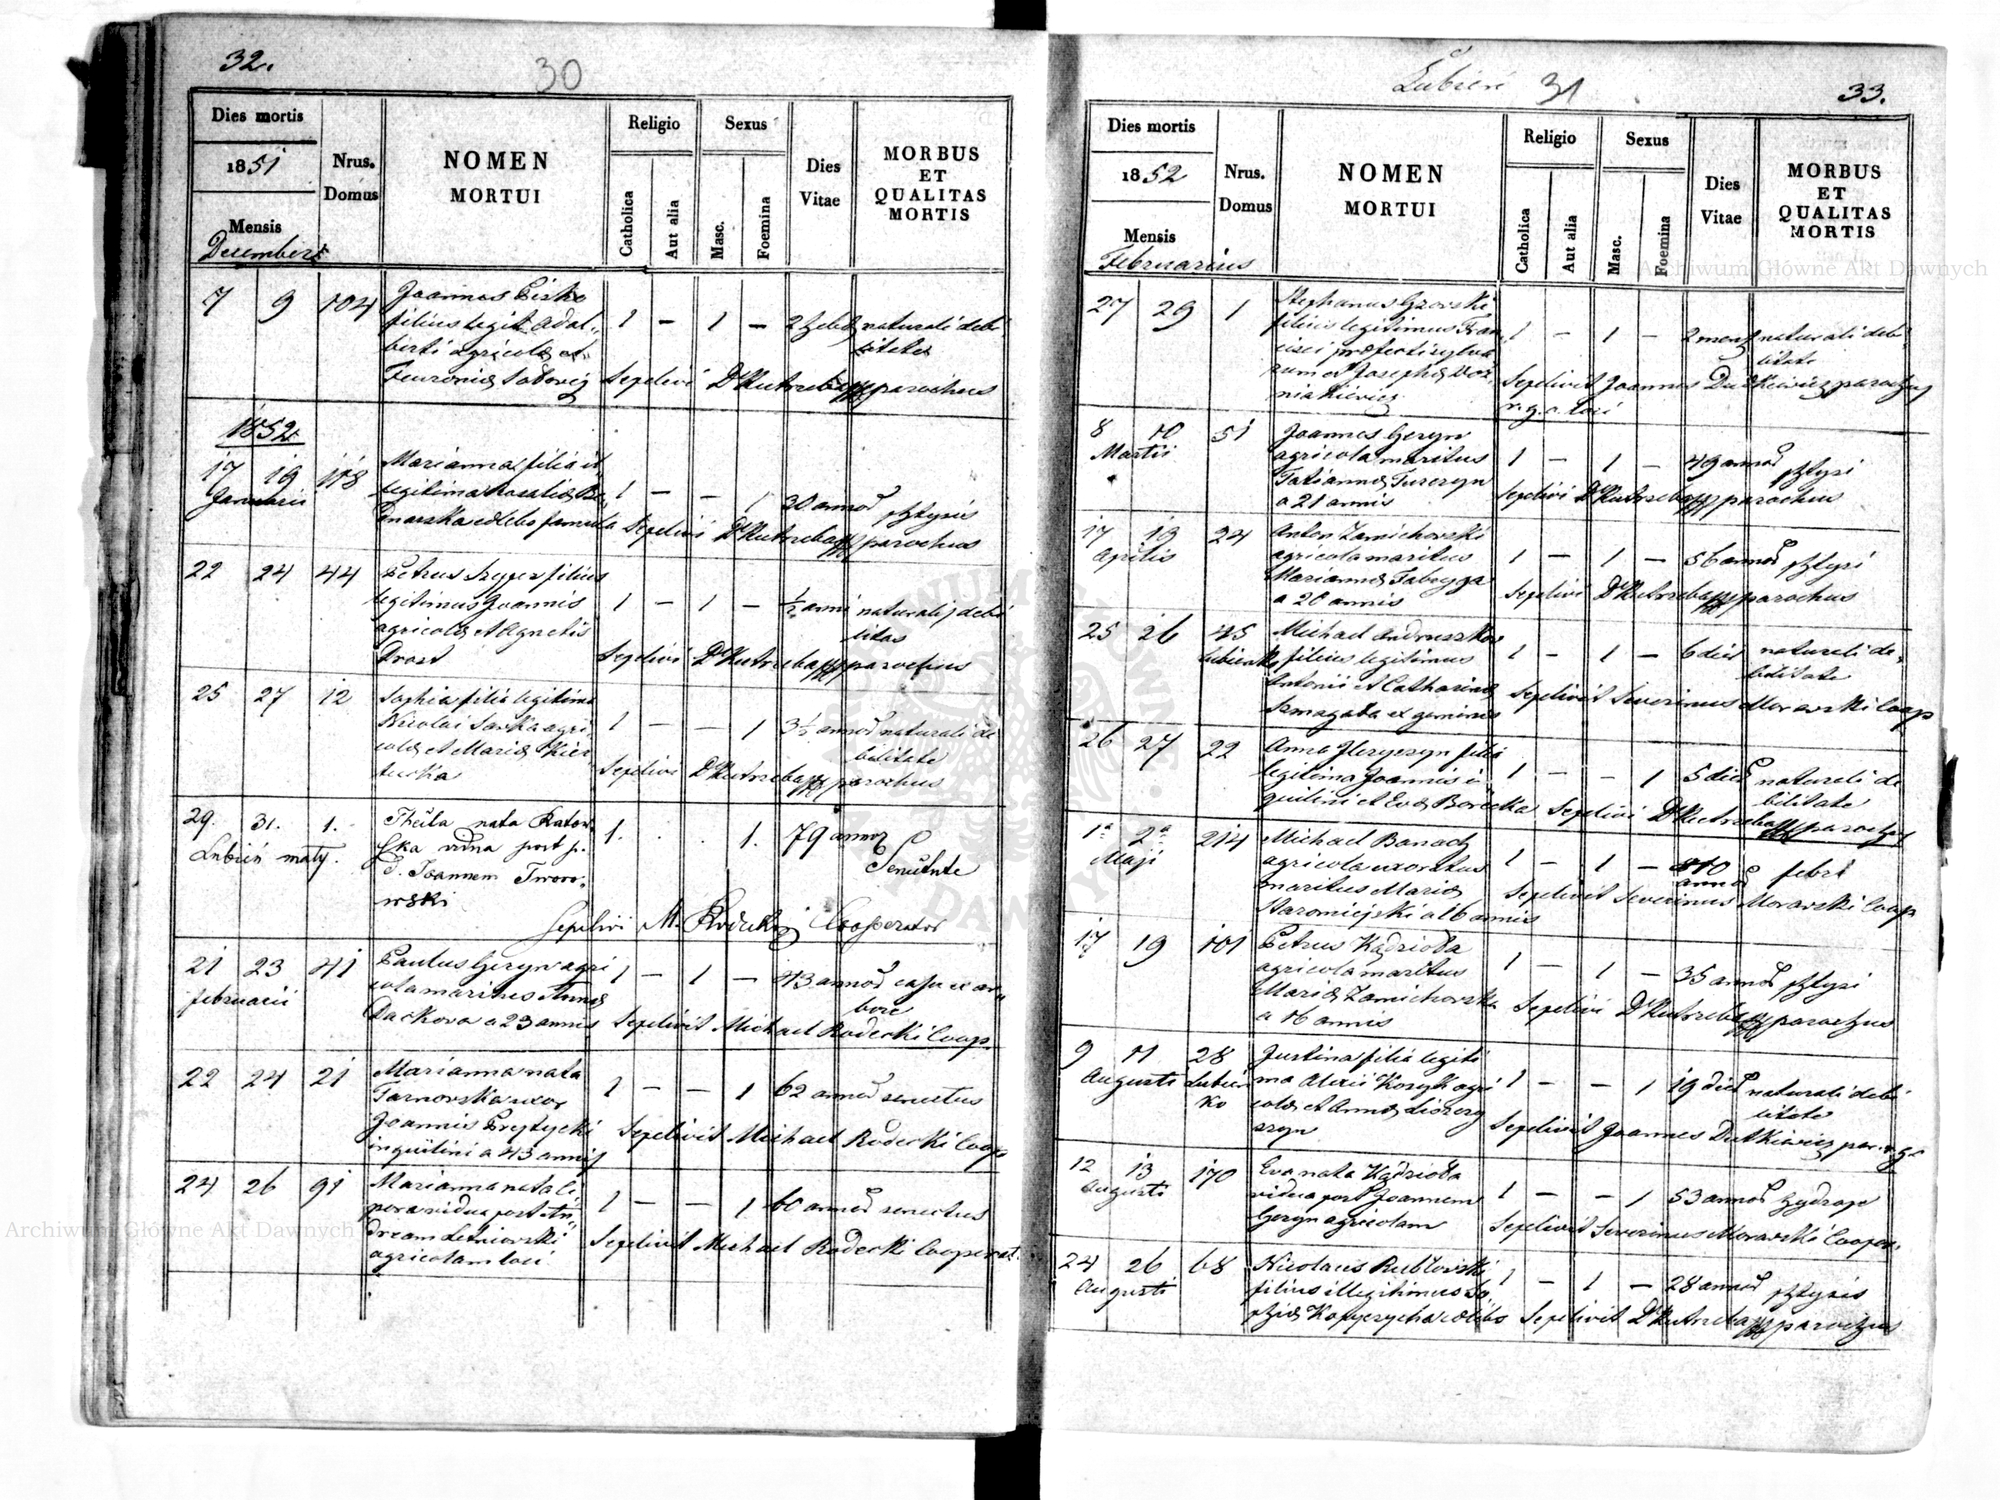 32.
30
Dies mortis
1851
Mensis
Decembris
Nrus.
Domus
NOMEN
MORTUI
Religio
Catholica
Aut alia
Sexus
Masc.
Foemina
Dies
Vitae
MORBUS
ET
QUALITAS
MORTIS
7 9 104 Joannes
filius legit. Adal-
berti agricolæ et
1 – 1 – naturali debi
litate
Sepelivi Dr Kutrzeba parochus
1852
17 19 118
Januarii
Marianna filia il
legitima Rosaliæ
famula
1 – – 1 30 annor phtysis
Sepelivi Dr Kutrzeba parochus
22 24 44 Petrus filius
legitimus Joannis
agricolæ et Agnetis
Drost
1 – 1 – ½ anni naturali debi
litas
Sepelivi Dr Kutrzeba parochus
25 27 12 Sophia filia legitima
Nicolai Sawka agri
colæ et Mariæ
1 – – 1 3½ annor naturali de
bilitate
Sepelivi Dr Kutrzeba parochus
29. 31. 1.
Lubień mały.
Thecla nata Ratow
ska vidua post p.
d. Joannem Tworo-
wski
1. 1. 79 annor
Senectute
Sepelivi M. Rodecki Cooperator
21 23 41
februarii
Paulus Geryn agri
cola maritus Annæ
Dackowa a 23 annis
1 – 1 – 43 annor casu ex ar-
bore
Sepelivit Michael Rodecki Coop.
22 24 21 Marianna nata
Tarnowska uxor
Joannis Prytycki
inquilini a 43 annis
1 – – 1 62 annor senectus
Sepelivit Michael Rodecki Coop.
24 26 91 Marianna nata Li
pora vidua post An
dream Leśniowski
agricolam loci
1 – – 1 60 annor senectus
Sepelivit Michael Rodecki Cooperat.
Łubień 31
33.
Dies mortis
1852
Mensis
Februarius
Nrus.
Domus
NOMEN
MORTUI
Religio
Catholica
Aut alia
Sexus
Masc.
Foemina
Dies
Vitae
MORBUS
ET
QUALITAS
MORTIS
27 29 1 Stephanus Gzowski
filius legitimus Fran
cisci præfecti sylva
rum et Josephæ Woz
niakiewicz
1 – 1 – 2 mens naturali debi
litate
Sepelivit Joannes Dutkiewicz parochus
r. g. c. loci
8 10 51
Martii
Joannes Geryn
agricola maritus
Tatiannæ Turczyn
a 21 annis
1 – 1 – 49 annor phtysi
Sepelivi Dr Kutrzeba parochus
17 19 24
Aprilis
Anton Zamichowski
agricola maritus
Mariannæ Fabryga
a 20 annis
1 – 1 – 56 annor phtysi
Sepelivi Dr Kutrzeba parochus
25 26 45
Lubienko
Michael Andruszkow
filius legitimus
Antonii et Catharinæ
Szmagała ex geminis
1 – 1 – 6 dier naturali de-
bilitate
Sepelivit Severinus Morawski Coop
26 27 22 Anna filia
legitima Joannis in
quilini et Evæ Borecka
1 – – 1 5 dier naturali de
bilitate
Sepelivi Dr Kutrzeba parochus
1a 2a 214
Maji
Michael Banach
agricola uxoratus
maritus Mariæ
Staromiejski a 16 annis
1 – 1 – 40
annor
febri
Sepelivit Severinus Morawski Coop
17 19 101 Petrus Kądziołka
agricola maritus
Mariæ Zamichowska
a 16 annis
1 – 1 – 35 annor phtysi
Sepelivi Dr Kutrzeba parochus
9 11 28
Augusti Lubien
ko
Justina filia legiti
ma Alexii Kozyk agri
colæ et Annæ
1 – – 1 19 dier naturali debi
litate
Sepelivit Joannes Dutkiewicz par. r. g. c
12 13 170
Augusti
Eva nata Kądziołka
vidua post Joannem
Geryn agricolam
1 – – 1 53 annor hydrope
Sepelivit Severinus Morawski Cooper.
24 26 68
Augusti
Nicolaus Rubłowski
filius illegitimus So
phiæ Kopyczycha cœlebs
1 – 1 – 28 annor phtysis
Sepelivit Dr Kutrzeba parochus
Archiwum Główne Akt Dawnych
Archiwum Główne Akt Dawnych
ARCHIWUM GŁÓWNE AKT DAWNYCH